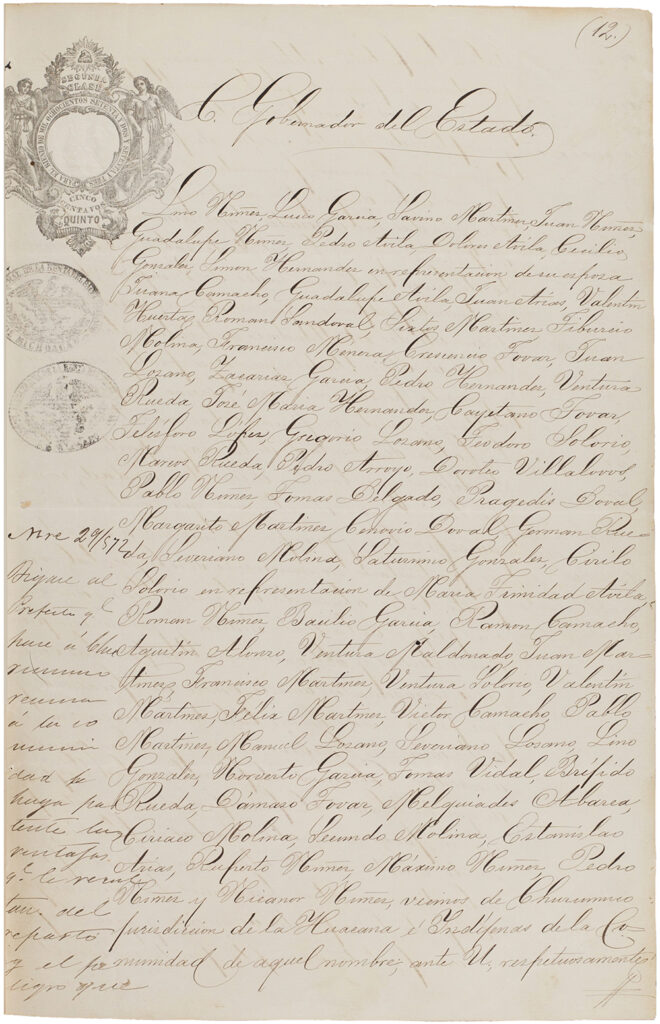 (12.)
SEGUNDA
CLASE
PARA EL BIENIO DE MIL OCHOCIENTOS SETENTA Y DOS Y SETENTA Y TRES
CINCO
CENTAVOS
QUINTO
C. Gobernador del Estado.
Lino Nuñez, Lucio Garcia, Savino Martinez, Juan Nuñez,
Guadalupe Nuñez, Pedro Avila, Dolores Avila, Cecilio
Gonzalez, Simon Hernandez en representacion de su esposa
Juana Camacho, Guadalupe Avila, Juan Arias, Valentin
Huerta, Roman Sandoval, Sixtos Martinez Tiburcio
Molina, Francisco Menera, Crescencio Tovar, Juan
Lozano, Zacarias Garcia, Pedro Hernandez, Ventura
Rueda, José Maria Hernandez, Cayetano Tovar,
Telésforo Lopez, Gregorio Lozano, Teodoro Solorio,
Marcos Rueda, Pedro Arroyo, Doroteo Villalovos,
Pablo Nuñez, Tomas Delgado, Pragedis Doval,
Margarito Martinez Cenovio Doval, German Rue-
da, Severiano Molina, Saturnino Gonzalez Cirilo
Solorio en representacion de Maria Trinidad Avila,
Roman Nuñez Basilio Garcia, Ramon Camacho,
Agustin Alonzo, Ventura Maldonado, Juan Mar-
tinez, Francisco Martinez, Ventura Solorio, Valentin
Martinez, Felix Martinez, Victor Camacho, Pablo
Martinez, Manuel Lozano, Severiano Losano, Lino
Gonzalez, Norverto Garcia, Tomas Vidal, Brífido
Rueda, Dámaso Tovar, Melquiades Abarca,
Ciriaco Molina, Secundo Molina, Estanislao
Arias, Ruperto Nuñez, Máximo Nuñez, Pedro
Nuñez y Nicanor Nuñez, vecinos de Churumuco
jurisdiccion de la Huacana é Indígenas de la Co-
munidad de aquel nombre; ante U. respetuosamente
Nvre 29/872
Digase al
Prefecto q.e
pase á Chu
rumuco
reuna
á la co
muni
dad y
haga pa
tente las
ventajas
q.e le resul
tan del
reparto
y el pe
ligro que